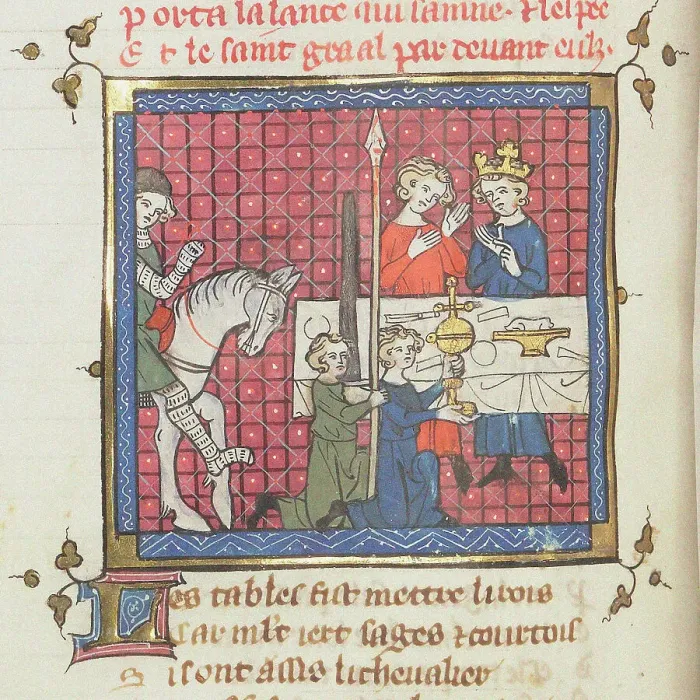 porta la lance qui sainne. Et lespee
Et le saint graal par deuant eulz.
Les tables fist mettre li rois
Car mlt iert sages et courtois
Si sont assis li cheualier